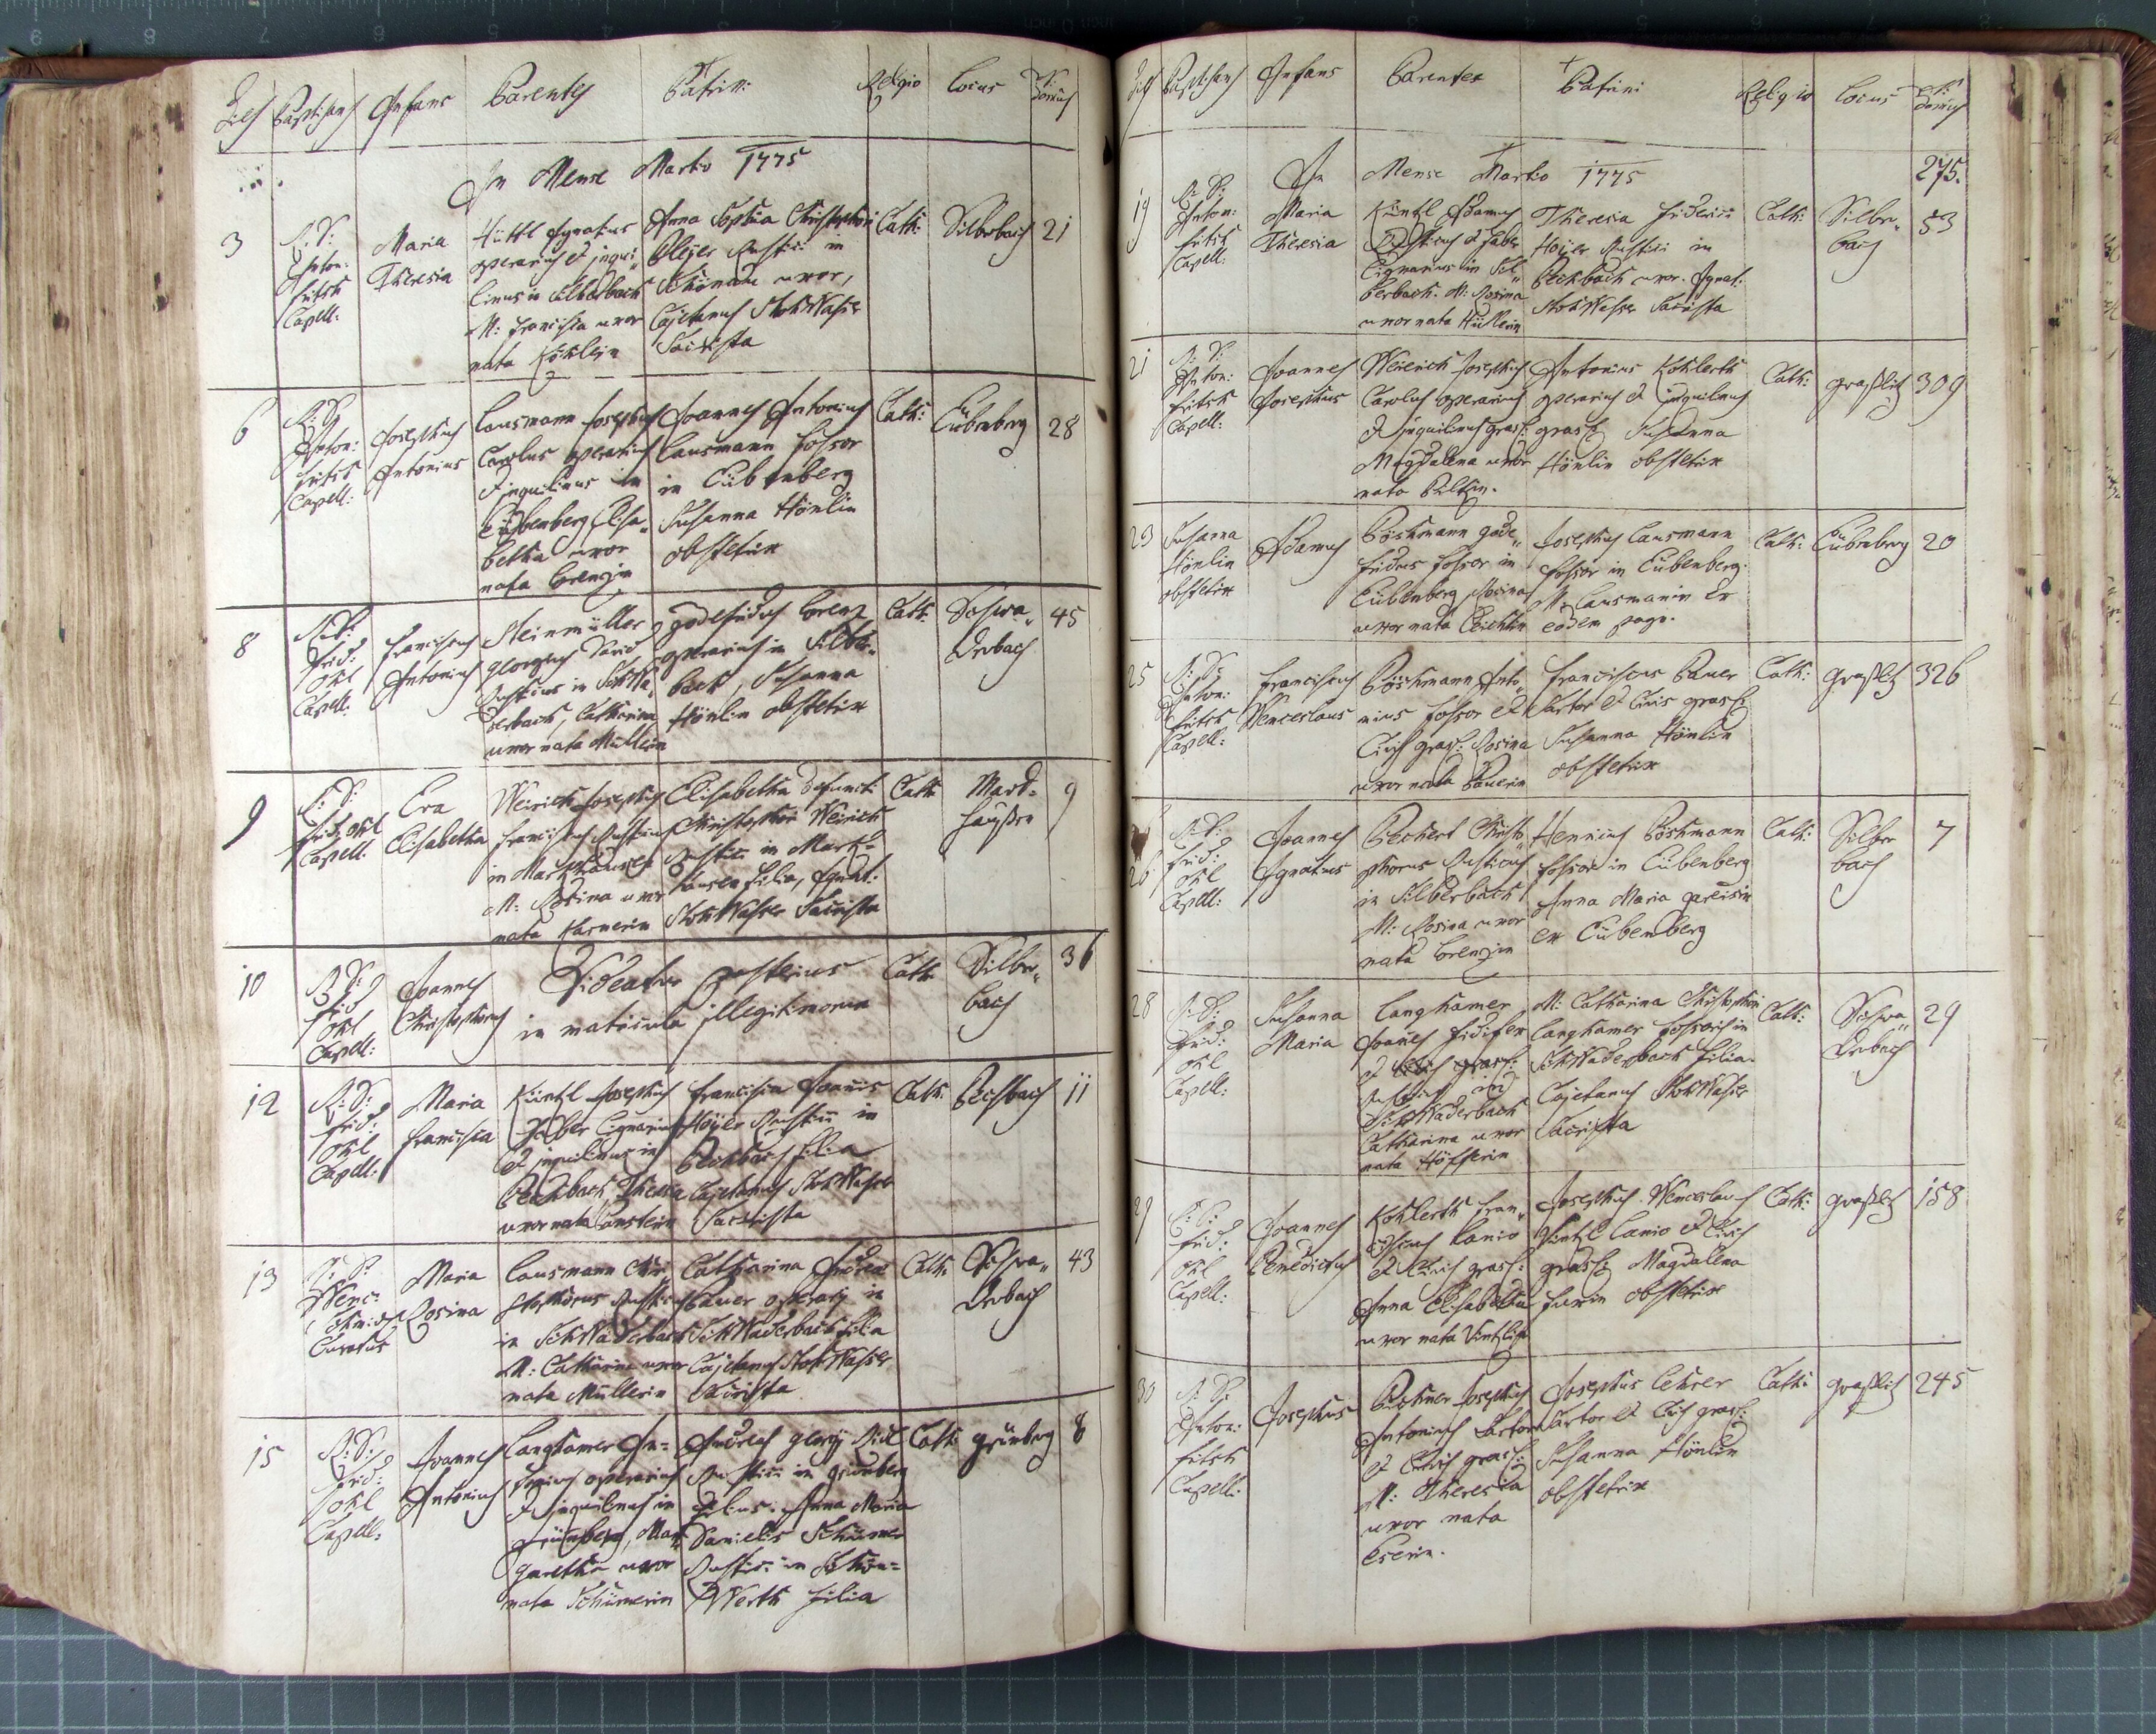 Dies Baptisans Infans Parentes Patrini Religio Locus N: Domus
In Mense Martio 1775
3
R: D:
Anton:
Fritsch
Capell:
Maria
Theresia
Hüttl Ignatius
operarius et inqui„
linus in Silberbach
M: Francisca uxor
nata Köhlerin
Anna Sophia Christophori
Bleyer Rustici in
uxor,
Cajetanus StohWasser
Sacrista
Cath: Silberbach 21
6
R: D:
Anton:
Fritsch
Capell:
Josephus
Antonius
Lausmann Josephus
Carolus operarius
et inquilinus in
Eubenberg Elisa„
betha uxor
nata Lorenzin
Joannes Antonius
Lausmann fossor
in Eubenberg
Susanna Hönlin
obstetrix
Cath: Eübenberg 28
8
R: D:
Frid:
Capell:
Franciscus
Antonius
Steinmüller
Georgius David
Rusticus in SchWa„
derbach, Catharina
uxor nata Müllerin
Godefridus Lorenz
operarius in Silber„
bach, Susanna
Hönlin obstetrix
Cath: Schwa„
derbach
45
9
R: D:
Frid:
Capell:
Eva
Elisabetha
Weirich Josephus
Franciscus Rusticus
in Markhausen
M: Rosina uxor
nata
Elisabetha defuncti
Christophori Weirich
Rustici in Mark=
hausen filia, Ignat:
StohWasser Sacrista
Cath: Mark=
haußen
9
10
R: D:
Frid:
Capell:
Joannes
Christophorus
Videatur posterius
in matricula illegitimorum
Cath: Silber„
bach
36
12
R: D:
Frid:
Capell:
Maria
Francisca
Küntzl Josephus
Faber Lignarius
et inquilinus in
Pechbach, Theresia
uxor nata
Francisca Joannis
Höyer Rustici in
Pechbach filia
Cajetanus StohWasser
Sacrista
Cath: Pechbach 11
13
R: D:
Wenc:
Schmidt
Curatus
Maria
Rosina
Lausmann Chri„
stophorus Rusticus
in SchWaderbach
M: Catharina uxor
nata Müllerin
Catharina Andreae
Bauer operarij in
SchWaderbach filia
Cajetanus StohWasser
Sacrista
Cath: Schwa„
derbach
43
15
R: D:
Frid:
Capell:
Joannes
Antonius
Langhamer An=
tonius operarius
et inquilinus in
Grünberg, Mar„
garetha uxor
nata Schürnerin
Andreas Georgij
Rustici in Grünberg
filius. Anna Maria
Danielis
Rustici in Schön=
Werth filia
Cath: Grünberg 8
Dies Baptisans Infans Parentes Patrini Religio Locus N: Domus
In Mense Martio 1775
275.
19
R: D:
Anton:
Fritsch
Capell:
Maria
Theresia
Küntzl Adamus
Rusticus et Faber
Lignarius in Sil„
berbach. M: Rosina
uxor nata Hüllerin
Theresia Friderici
Höyer Rustici in
Pechbach uxor. Ignat:
StohWasser Sacrista
Cath: Silber„
bach
53
21
R: D:
Anton:
Fritsch
Capell:
Joannes
Josephus
Weirich Josephus
Carolus operarius
et inquilinus grasl:
Magdalena uxor
nata
Antonius Kohlerth
operarius et inquilinus
grasl: Susanna
Hönlin obstetrix
Cath: graßlitz 309
23
Susanna
Hönlin
obstetrix
Adamus
Pöschmann Gode„
fridus fossor in
Eubenberg Rosina
uxor nata
Josephus Lausmann
fossor in Eubenberg.
M: Lausmanin Ex
eodem pago.
Cath: Eübenberg 20
25
R: D:
Anton:
Fritsch
Capell:
Franciscus
Wenceslaus
Pöschmann Anto„
nius fossor et
Civis grasl: Rosina
uxor nata Bauerin
Franciscus Bauer
Sartor et Civis grasl:
Susanna Hönlin
obstetrix
Cath: graßlitz 326
26
R: D:
Frid:
Capell:
Joannes
Ignatius
Pechert Christo„
phorus Rusticus
in Silberbach
M: Rosina uxor
nata Lorenzin
Henricus Pöschmann
fossor in Eubenberg
Anna Maria
ex Eubenberg
Cath: Silber
bach
7
28
R: D:
Frid:
Capell:
Susanna
Maria
Langhamer
Joannes
et Civis grasl:
Rusticus in
SchWaderbach
Catharina uxor
nata
M: Catharina Christophori
Langhamer fossoris in
SchWaderbach filia.
Cajetanus StohWasser
Sacrista
Cath: Schwa„
derbach
29
29
R: D:
Frid:
Capell:
Joannes
Benedictus
Kohlerth Fran„
ciscus Lanio
et Civis grasl:
Anna Elisabetha
uxor nata
Josephus Wenceslaus
Lanio et Civis
grasl: Magdalena
obstetrix
Cath: graßlitz 158
30
R: D:
Anton:
Fritsch
Capell:
Josephus
Josephus
Antonius Sartor
et Civis grasl:
M: Theresia
uxor nata
Josephus Lehrer
Sartor et Civis grasl:
Susanna Hönlin
obstetrix
Cath: graßlitz 245